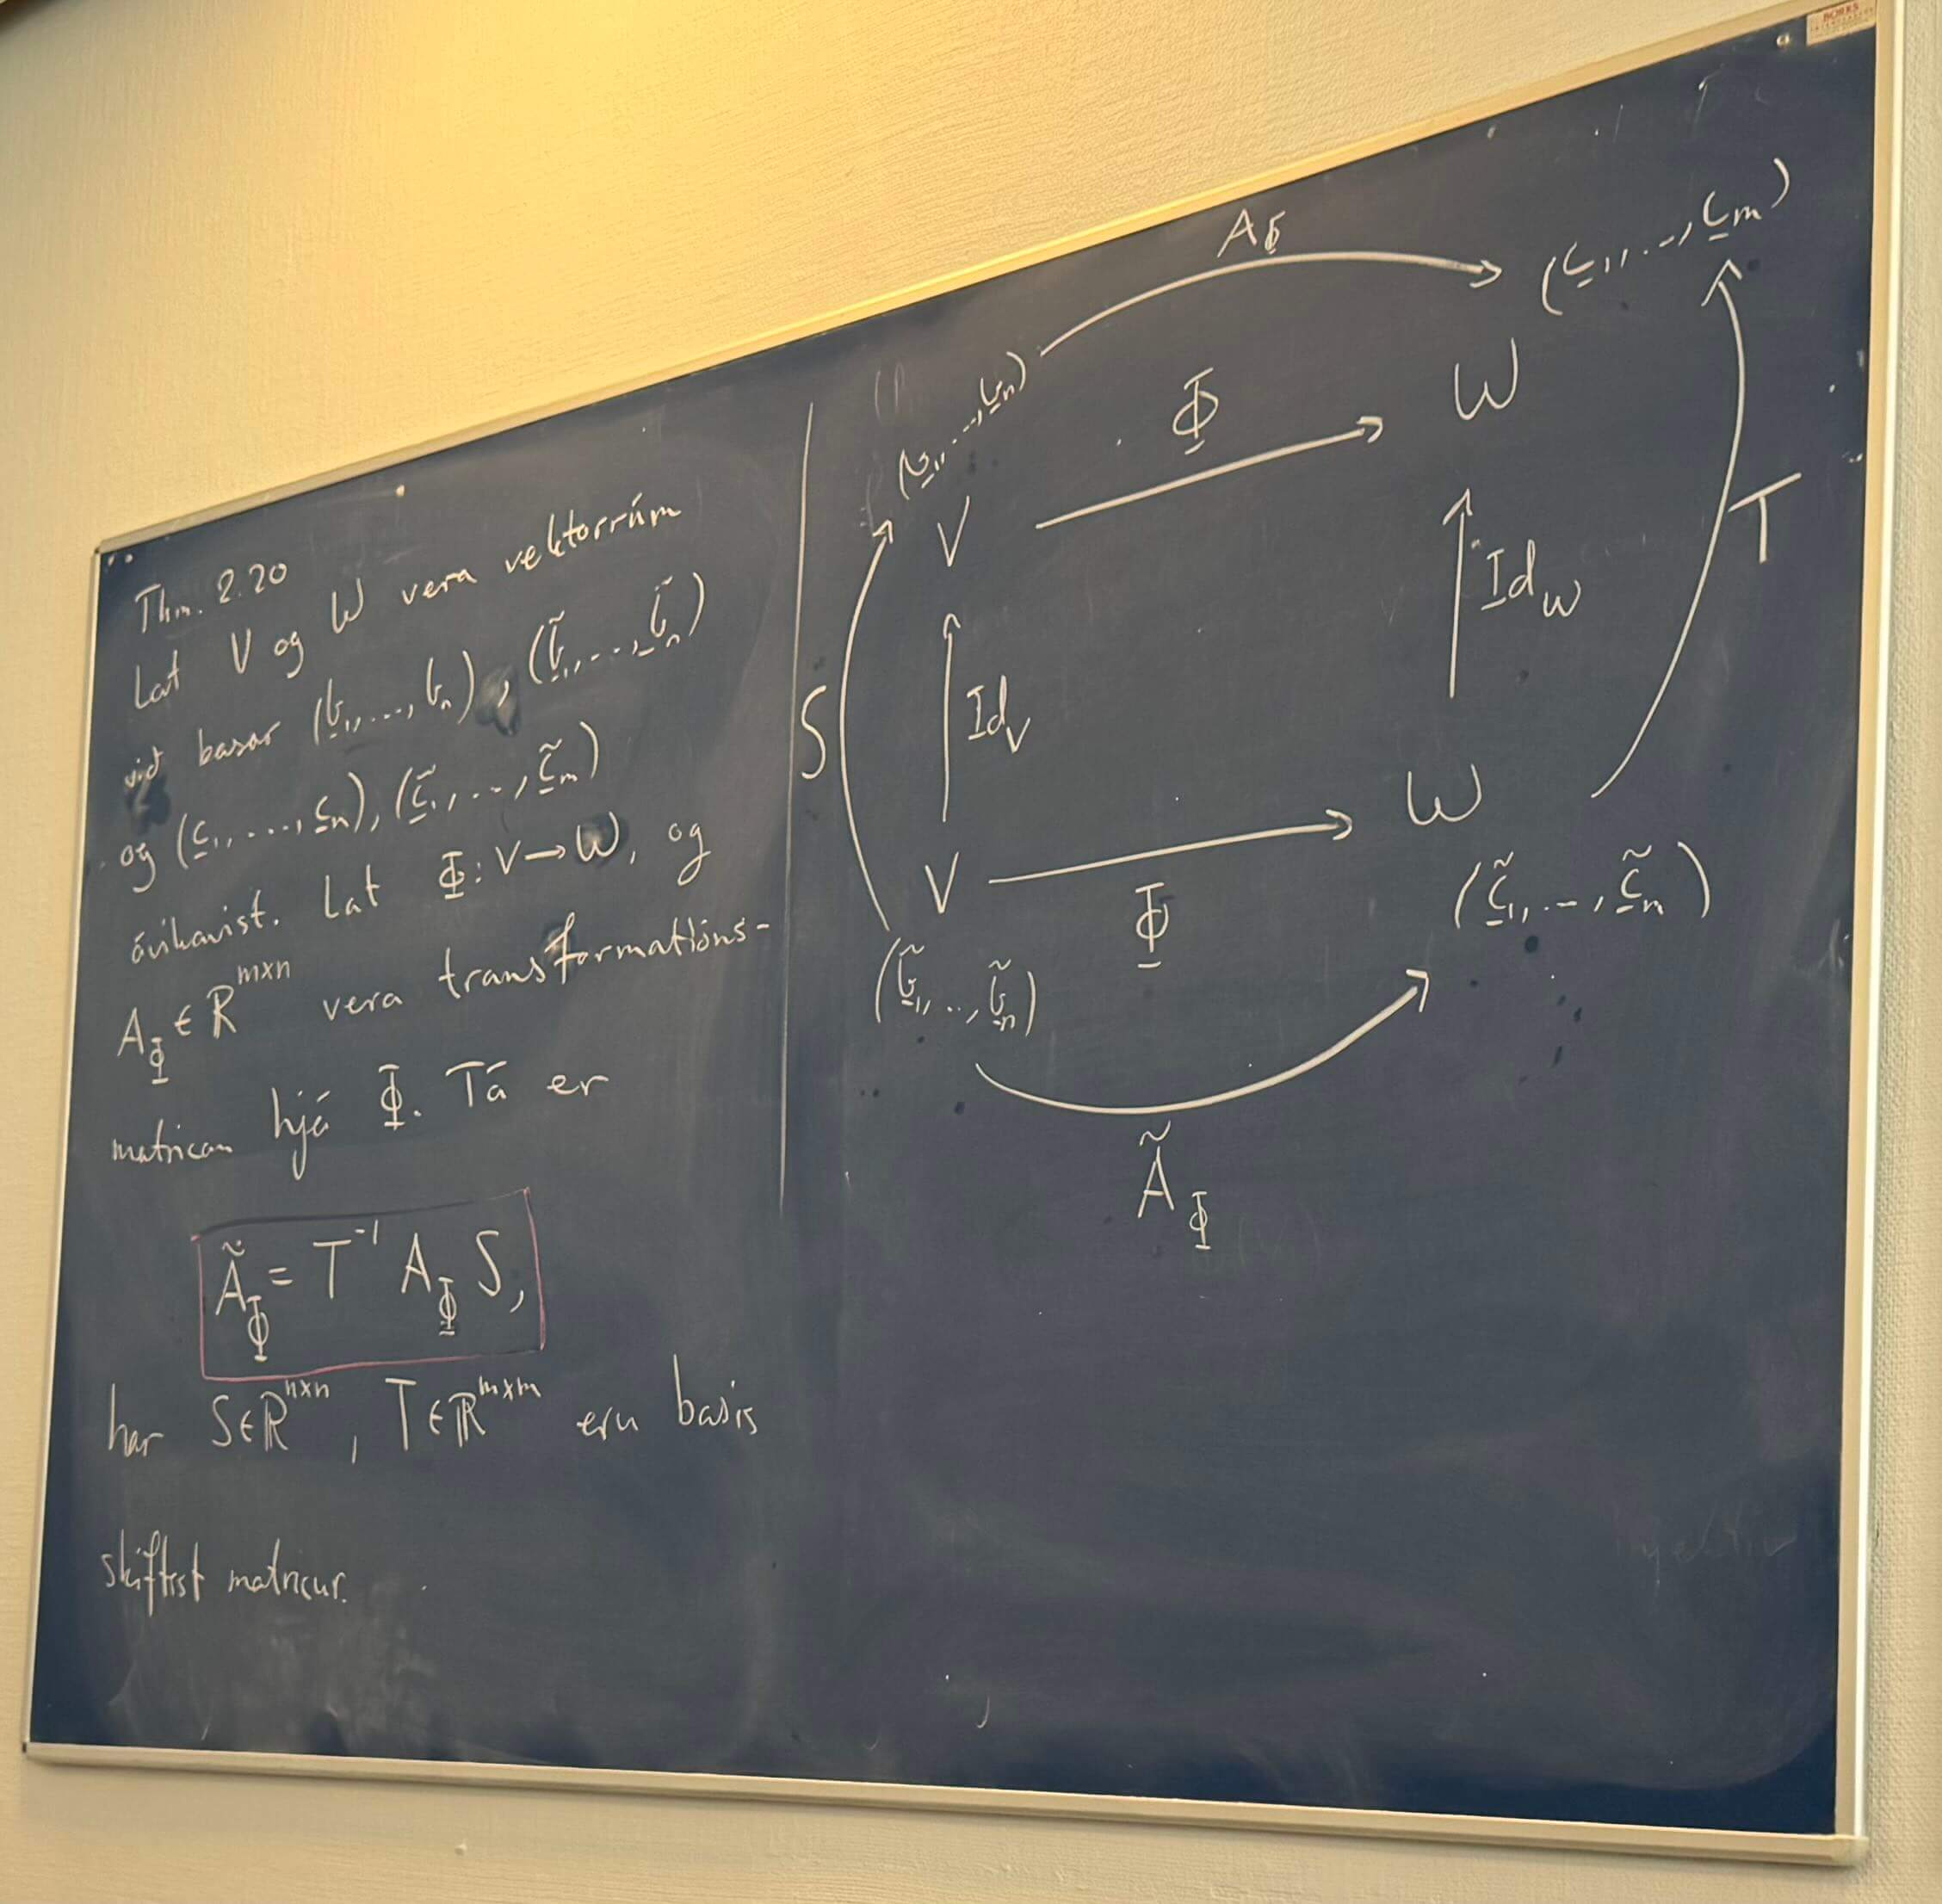 Thm. 2.20
Lat V og W vera vektorrúm
við basar (b̲₁, ..., b̲ₙ), (b̲̃₁, ..., b̲̃ₙ)
og (c̲₁, ..., c̲ₘ), (c̲̃₁, ..., c̲̃ₘ)
ávikavist. Lat Φ: V → W, og
A_Φ ∈ ℝ^{m×n} vera transformatións-
matrican hjá Φ. Tá er
Ã_Φ = T⁻¹ A_Φ S,
har S ∈ ℝ^{n×n}, T ∈ ℝ^{m×m} eru basis
skiftist matricur.
A_Φ
(c̲₁, ..., c̲ₘ)
(b̲₁, ..., b̲ₙ)
Φ
W
V
Id_W
T
S
Id_V
W
V
Φ
(c̲̃₁, ..., c̲̃ₘ)
(b̲̃₁, ..., b̲̃ₙ)
Ã_Φ